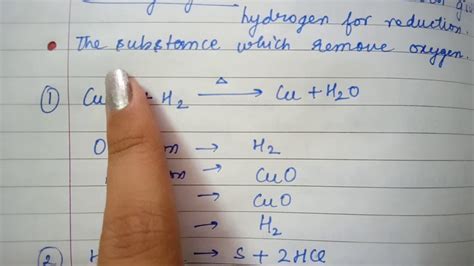 hydrogen for reduction.
• The substance which remove oxygen.
① Cu + H₂ —Δ→ Cu + H₂O
→ H₂
→ CuO
→ CuO
→ H₂
② H → S + 2HCl